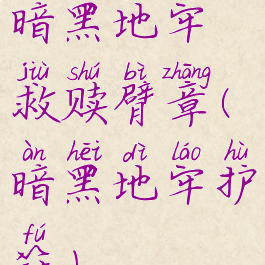 暗黑地牢
jiù shú bì zhāng
救赎臂章(
àn hēi dì láo hù
暗黑地牢护
fú
符)